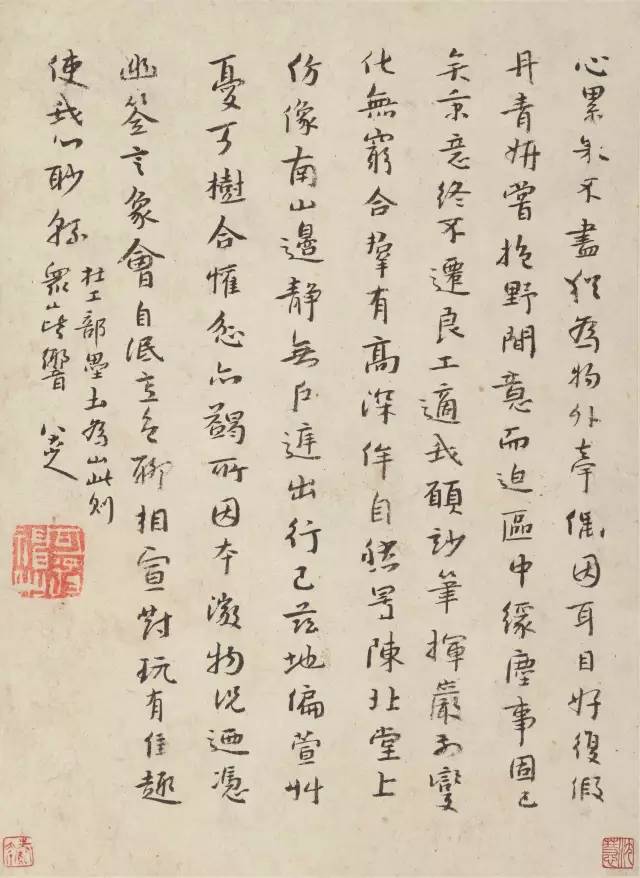 心累不盡猶為物外牽偶因耳目好復假
丹青妍嘗抱野間意而迫區中緣塵事固已
矣秉意終不遷良工適我願妙筆揮巖泉變
化無窮合羣有高深侔自然置陳北堂上
仿像南山邊靜無戶庭出行已茲地偏萱艸
憂可樹合懽忿亦蠲所因本微物況迺憑
幽筌言象會自泯意色聊相宣對玩有佳趣
使我心眇緜
杜工部壘土為山此則
衆山皆響 八大山人